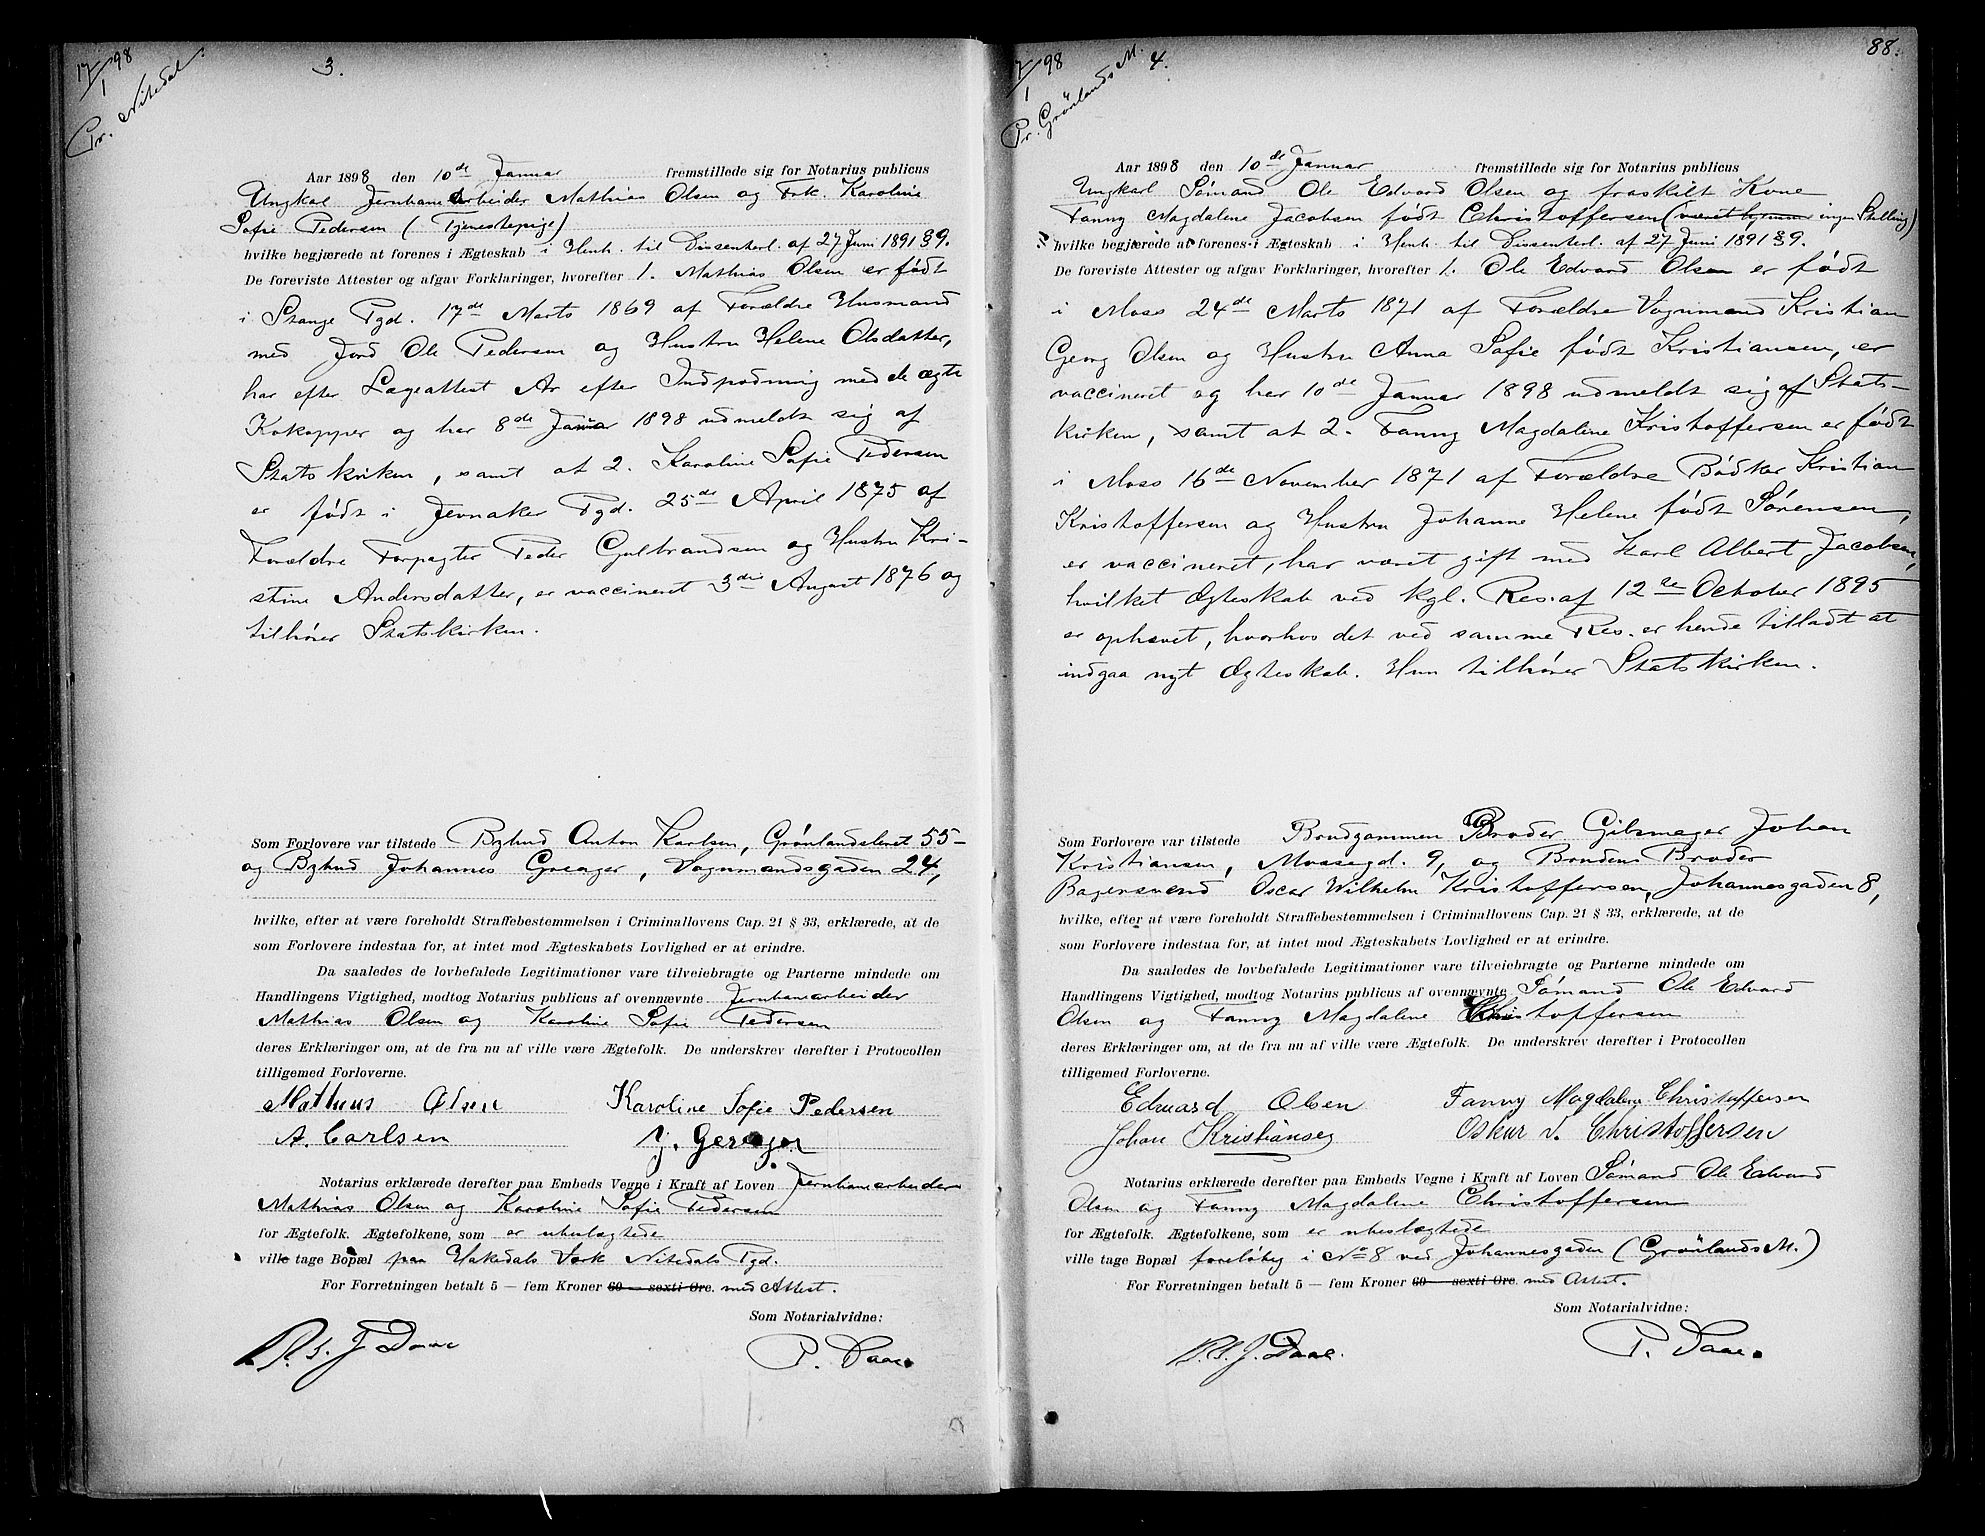 17/1 98
Pr. Nitedal.
3.
Aar 1898 den 10de Januar fremstillede sig for Notarius publicus
Ungkarl Jernbanearbeider Mathias Olsen og Frk. Karoline
Sofie Pedersen (Tjenestepige)
hvilke begjærede at forenes i Ægteskab i Henh. til Dissenterl. af 27 Juni 1891 § 9.
De foreviste Attester og afgav Forklaringer, hvorefter 1. Mathias Olsen er født
i Stange Pgd. 17de Marts 1869 af Forældre Husmand
med Jord Ole Pedersen og Hustru Helene Olsdatter,
har efter Lægeattest Ar efter Indpodning med de ægte
Kokopper og har 8de Januar 1898 udmeldt sig af
Statskirken, samt at 2. Karoline Sofie Pedersen
er født i Jevnaker Pgd. 25de April 1875 af
Forældre Forpagter Peder Gulbrandsen og Hustru Kri-
stine Andersdatter, er vaccineret 3die August 1876 og
tilhører Statskirken.
Som Forlovere var tilstede Bybud Anton Karlsen, Grønlandsleret 55-
og Bybud Johannes Greager, Vognmandsgaden 24,
hvilke, efter at være foreholdt Straffebestemmelsen i Criminallovens Cap. 21 § 33, erklærede, at de
som Forlovere indestaa for, at intet mod Ægteskabets Lovlighed er at erindre.
Da saaledes de lovbefalede Legitimationer vare tilveiebragte og Parterne mindede om
Handlingens Vigtighed, modtog Notarius publicus af ovennævnte Jernbanearbeider
Mathias Olsen og Karoline Sofie Pedersen
deres Erklæringer om, at de fra nu af ville være Ægtefolk. De underskrev derefter i Protocollen
tilligemed Forloverne.
Mathias Olsen Karoline Sofie Pedersen
A. Carlsen J.
Notarius erklærede derefter paa Embeds Vegne i Kraft af Loven Jernbanearbeider
Mathias Olsen og Karoline Sofie Pedersen
for Ægtefolk. Ægtefolkene, som er ubeslægtede
ville tage Bopæl paa Hakedals Værk Nitedals Pgd.
For Forretningen betalt 5 — fem Kroner 60 — sexti Øre. med Attest.
Som Notarialvidne:
J Daae P. Daae.
88.
17/1 98
Pr. Grönlands M.
4.
Aar 1898 den 10de Januar fremstillede sig for Notarius publicus
Ungkarl Sømand Ole Edvard Olsen og fraskilt Kone
Fanny Magdalene Jacobsen født Christoffersen (været hjemme ingen Stilling)
hvilke begjærede at forenes i Ægteskab i Henh. til Dissenterl. af 27 Juni 1891 § 9.
De foreviste Attester og afgav Forklaringer, hvorefter 1. Ole Edvard Olsen er født
i Moss 24de Marts 1871 af Forældre Vognmand Kristian
Georg Olsen og Hustru Anna Sofie født Kristiansen, er
vaccineret og har 10de Januar 1898 udmeldt sig af Stats-
kirken, samt at 2. Fanny Magdalene Kristoffersen er født
i Moss 16de November 1871 af Forældre Bødker Kristian
Kristoffersen og Hustru Johanne Helene født Sørensen,
er vaccineret, har været gift med Karl Albert Jacobsen,
hvilket Ægteskab ved kgl. Res. af 12te October 1895
er ophævet, hvorhos det ved samme Res. er hende tilladt at
indgaa nyt Ægteskab. Hun tilhører Statskirken.
Som Forlovere var tilstede Brudgommen Broder Gibsmager Johan
Kristiansen, Mossegd. 9, og Brudens Broder
Bagersvend Oscar Wilhelm Kristoffersen, Johannesgaden 8,
hvilke, efter at være foreholdt Straffebestemmelsen i Criminallovens Cap. 21 § 33, erklærede, at de
som Forlovere indestaa for, at intet mod Ægteskabets Lovlighed er at erindre.
Da saaledes de lovbefalede Legitimationer vare tilveiebragte og Parterne mindede om
Handlingens Vigtighed, modtog Notarius publicus af ovennævnte Sømand Ole Edvard
Olsen og Fanny Magdalene Christoffersen
deres Erklæringer om, at de fra nu af ville være Ægtefolk. De underskrev derefter i Protocollen
tilligemed Forloverne.
Edvard Olsen Fanny Magdalene Christoffersen
Johan Kristiansen Oskar V. Christoffersen
Notarius erklærede derefter paa Embeds Vegne i Kraft af Loven Sømand Ole Edvard
Olsen og Fanny Magdalene Christoffersen
for Ægtefolk. Ægtefolkene, som er ubeslægtede
ville tage Bopæl foreløbig i No 8 ved Johannesgaden (Grönlands M.)
For Forretningen betalt 5 — fem Kroner 60 — sexti Øre. med Attest.
Som Notarialvidne:
J. Daae. P. Daae.